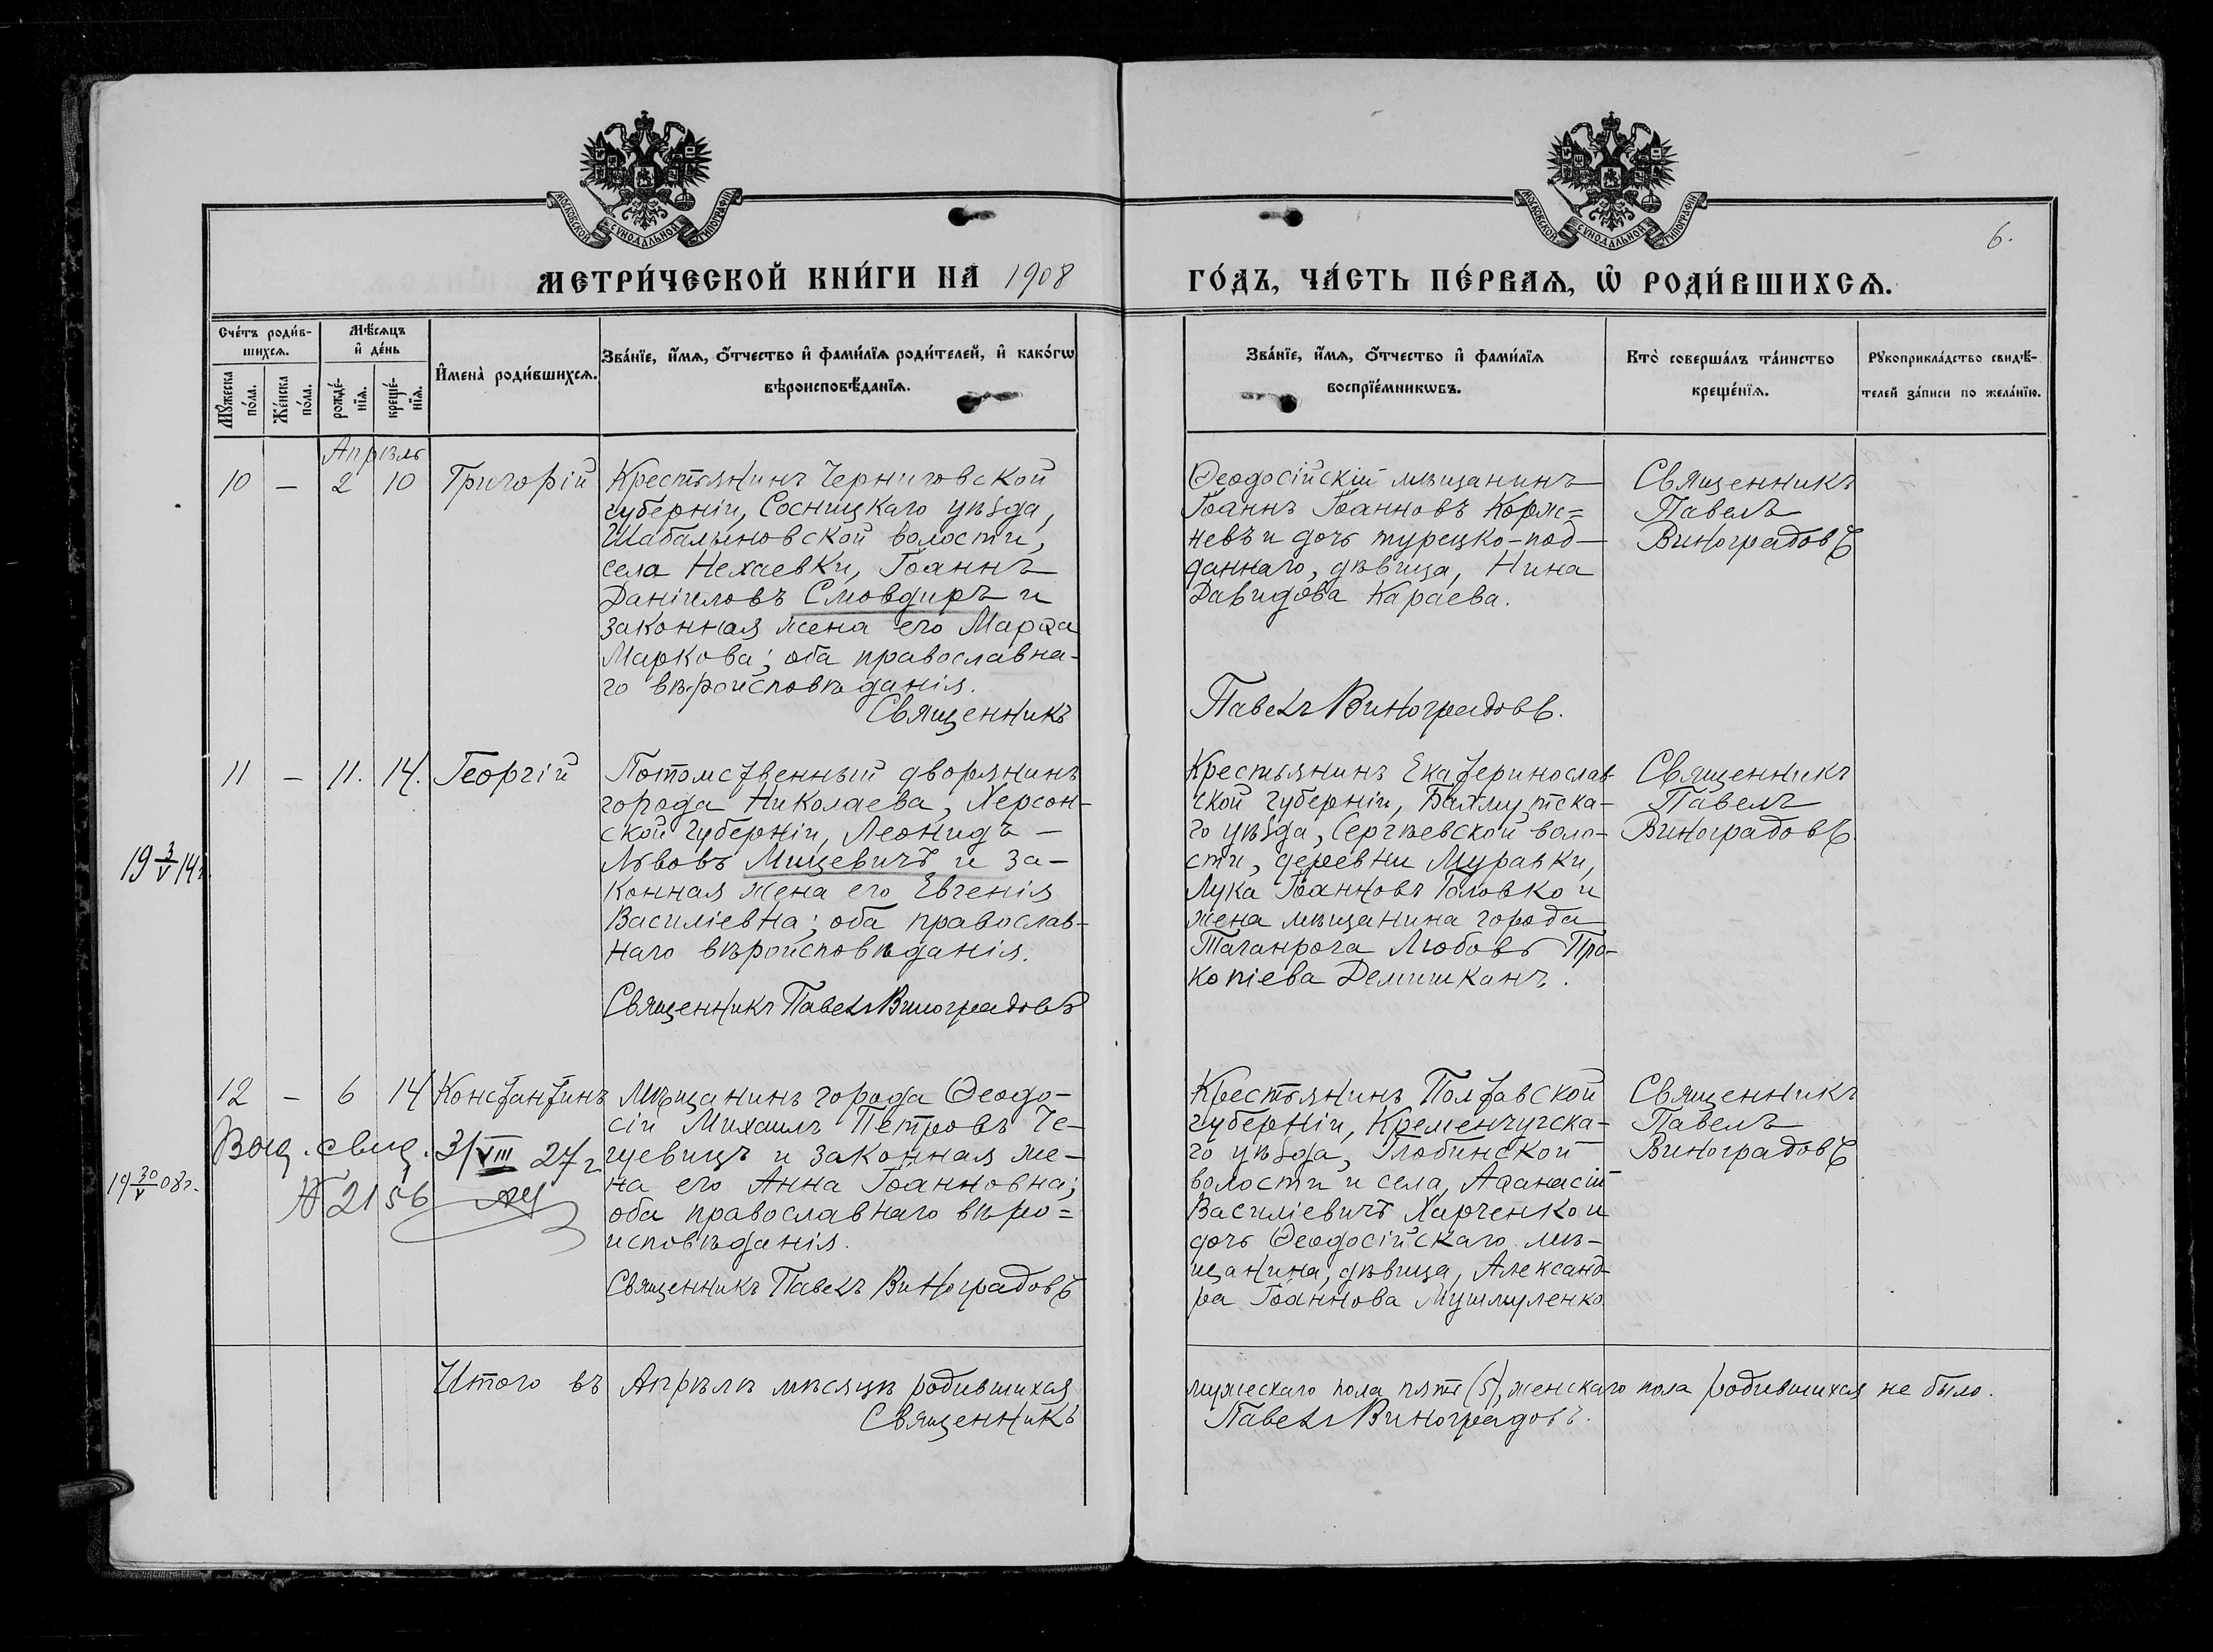 МОСКОВСКОЙ СѴНОДАЛЬНОЙ ТИПОГРАФІИ
МОСКОВСКОЙ СѴНОДАЛЬНОЙ ТИПОГРАФІИ
6.
МЕТРИ́ЧЕСКОЙ КНИ́ГИ НА 1908
ГО́ДЪ, ЧА́СТЬ ПЕ́РВАѦ, Ѡ҆ РОДИ́ВШИХСѦ.
Сче́тъ роди́в-
шихсѧ.
Мѣ́сѧцъ
и҆ де́нь
Мꙋ́жеска по́ла.
Же́нска по́ла.
рожде́-нїѧ.
креще́-нїѧ.
И҆мена̀ роди́вшихсѧ.
Зва́нїе, и҆́мѧ, ѻ҆́тчество и҆ фами́лїѧ роди́телей, и҆ како́гѡ
вѣроисповѣ́данїѧ.
Зва́нїе, и҆́мѧ, ѻ҆́тчество и҆ фами́лїѧ
воспрїе́мникѡвъ.
Кто̀ соверша́лъ та́инство
креще́нїѧ.
Рꙋкоприкла́дство свидѣ́-
телей за́писи по жела́нїю.
Апрѣль
10 — 2 10 Григорій
Крестьянинъ Черниговской
губерніи, Сосницкаго уѣзда,
Шабалиновской волости,
села Нехаевки, Іоаннъ
Даніиловъ Смовдиръ и
законная жена его Марѳа
Маркова; оба православна-
го вѣроисповѣданія.
Священникъ
Ѳеодосійскій мѣщанинъ
Іоаннъ Іоанновъ Корж=
невъ и дочь турецко-под-
даннаго, дѣвица, Нина
Давидова Караева.
Павелъ Виноградовъ.
Священникъ
Павелъ
Виноградовъ
11 — 11. 14. Георгій
19 3/V 14г.
Потомственный дворянинъ
города Николаева, Херсон-
ской губерніи, Леонидъ —
Львовъ Мицевичъ и за-
конная жена его Евгенія
Василіевна; оба православ-
наго вѣроисповѣданія.
Священникъ Павелъ Виноградовъ
Крестьянинъ Екатеринослав
ской губерніи, Бахмутска-
го уѣзда, Сергѣевской воло-
сти, деревни Муравки,
Лука Іоанновъ Головко и
жена мѣщанина города
Таганрога Любовь Про-
копіева Демишканъ.
Священникъ
Павелъ
Виноградовъ.
12 — 6 14 Константинъ
Выд. свид. 31/VIII 27г
№ 2156
19 30/V 08г.
Мѣщанинъ города Ѳеодо-
сіи Михаилъ Петровъ Че-
гуевицъ и законная же-
на его Анна Іоанновна;
оба православнаго вѣро=
исповѣданія.
Священникъ Павелъ Виноградовъ
Крестьянинъ Полтавской
губерніи, Кременчугска-
го уѣзда, Глобинской
волости и села, Аѳанасій
Василіевичъ Харченко и
дочь Ѳеодосійскаго мѣ-
щанина, дѣвица, Александ-
ра Іоаннова Мушмуленко
Священникъ
Павелъ
Виноградовъ
Итого въ Апрѣлѣ мѣсяцѣ родившихся
Священникъ
мужескаго пола пять (5), женскаго пола родившихся не было.
Павелъ Виноградовъ.